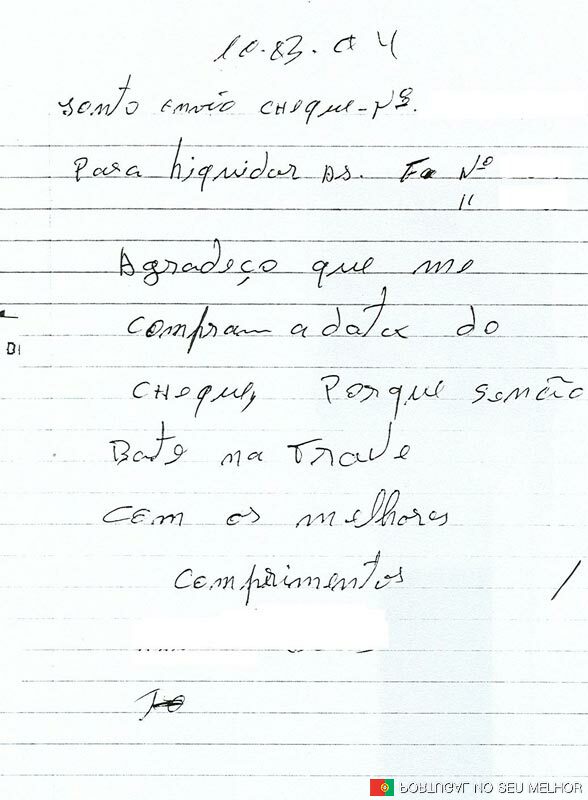 10.03.04
Junto envio cheque-Nº.
Para liquidar As. Fa Nº
"
Agradeço que me
compram a data do
cheque, Porque senão
Bate na Trave
Com os melhores
Comprimentos
BI
PORTUGAL NO SEU MELHOR